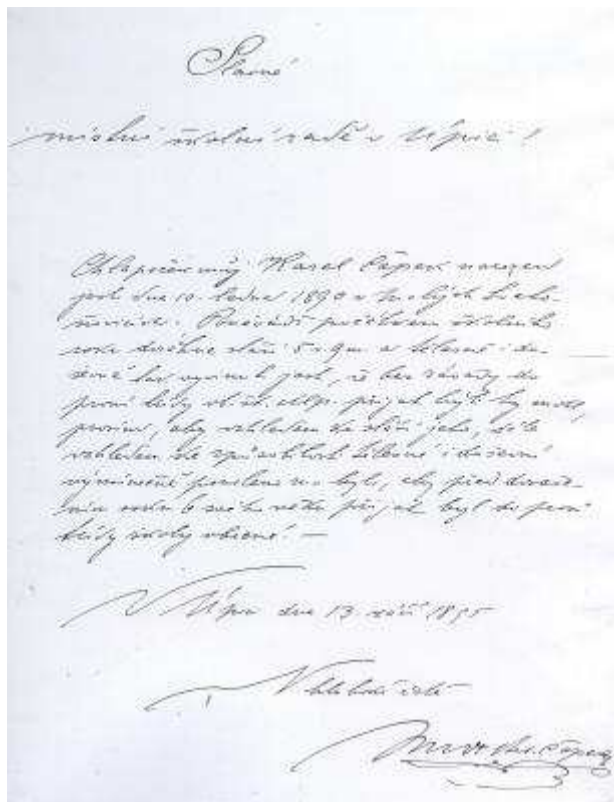 Slavné
místní školní radě v Úpici!
Chlapeček můj Karel Čapek narozen
jest dne 10. ledna 1890 v Malých Svato-
ňovicích. Poněvadž počátkem školního
roku dosáhne stáří 5 r. 9 m. a tělesně i du-
ševně tak vyvinut jest, že bez závady do
první třídy ob. šk. chlap. přijat býti by mohl,
prosím, aby vzhledem ke stáří jeho, dále
vzhledem ke způsobilosti tělesné i duševní
výminečně povoleno mu bylo, aby před dovrše-
ním roku 6 svého věku přijat byl do první
třídy školy obecné. —
V Úpici dne 13. září 1895
V hluboké úctě
MUDr Ant. Čapek